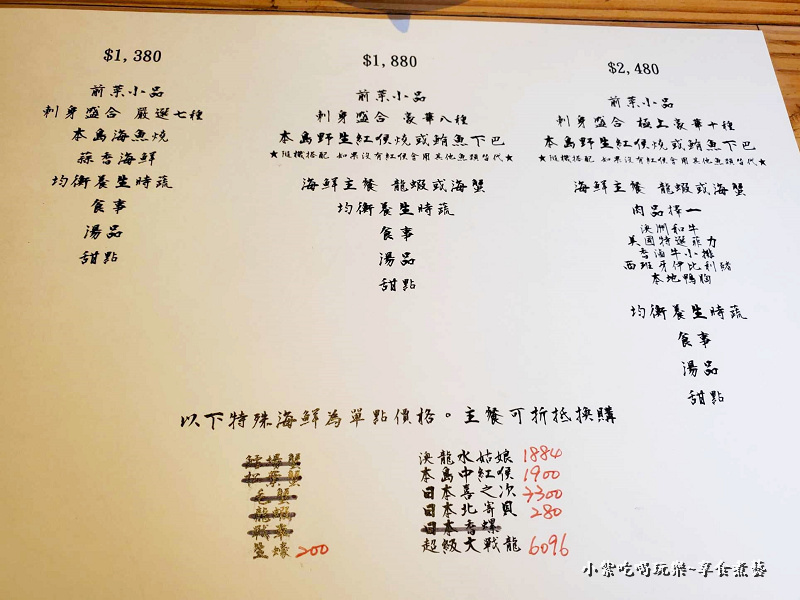 $1,380
前菜小品
刺身盛合 嚴選七種
本島海魚燒
蒜香海鮮
均衡養生時蔬
食事
湯品
甜點
$1,880
前菜小品
刺身盛合 豪華八種
本島野生紅喉燒或鮪魚下巴
★隨機搭配 如果沒有紅喉會用其他魚類替代★
海鮮主餐 龍蝦或海蟹
均衡養生時蔬
食事
湯品
甜點
$2,480
前菜小品
刺身盛合 極上豪華十種
本島野生紅喉燒或鮪魚下巴
★隨機搭配 如果沒有紅喉會用其他魚類替代★
海鮮主餐 龍蝦或海蟹
肉品擇一
澳洲和牛
美國特選菲力
香滷牛小排
西班牙伊比利豬
本地鴨胸
均衡養生時蔬
食事
湯品
甜點
以下特殊海鮮為單點價格。主餐可折抵換購
松葉蟹
毛蟹
龍蝦
生蠔 200
澳龍水姑娘 1884
本島中紅喉 1900
日本喜之次 3300
日本北寄貝 280
日本香螺
超級大戰龍 6096
小紫吃喝玩樂~享食煮藝